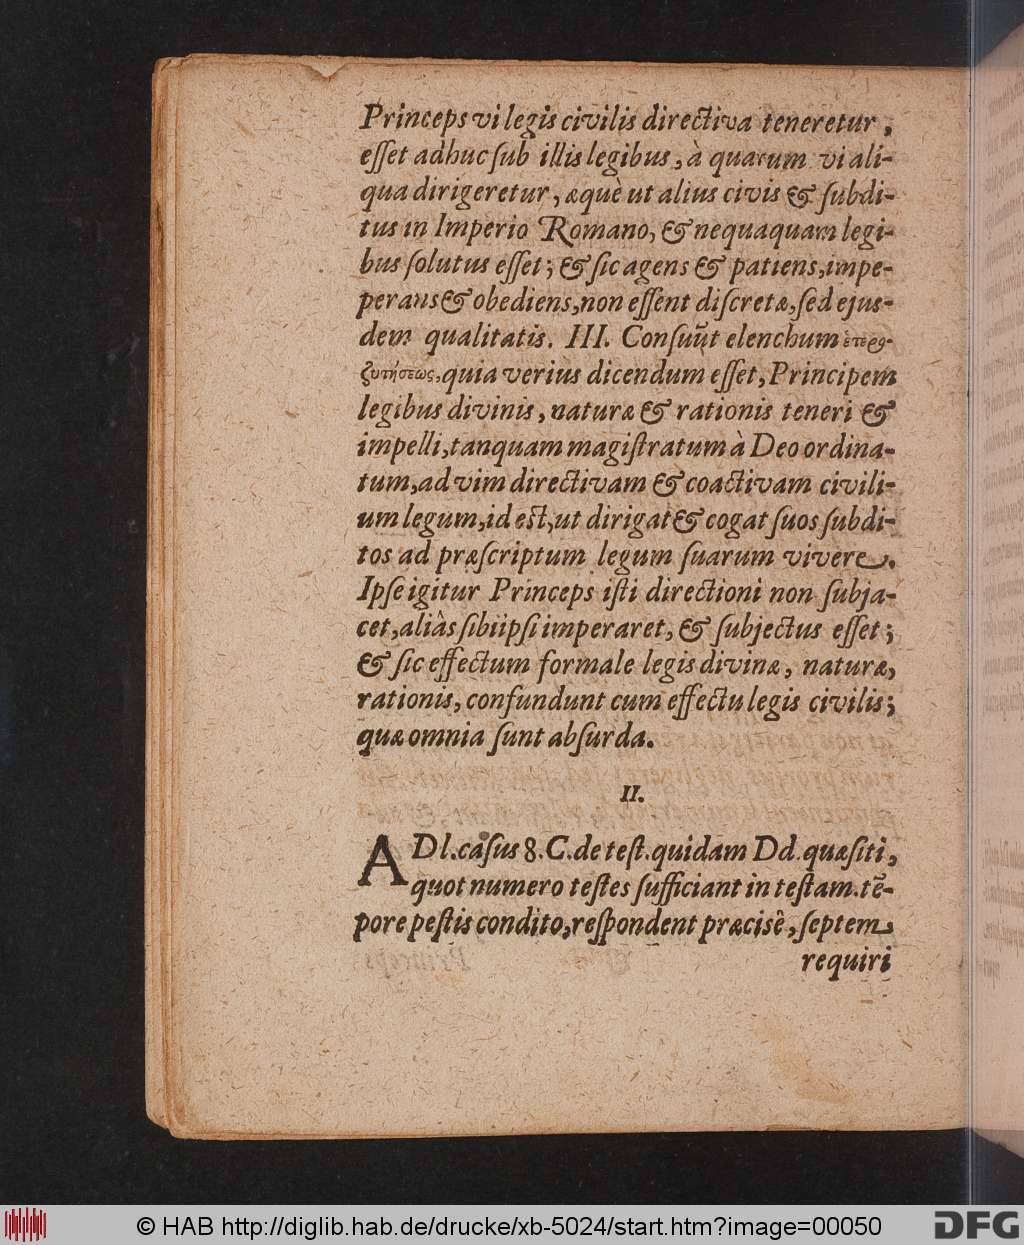 Princeps vi legis civilis directiva teneretur,
eſſet adhuc ſub illis legibus, à quarum vi ali-
qua dirigeretur, æquè ut alius civis & ſubdi-
tus in Imperio Romano, & nequaquam legi-
bus ſolutus eſſet; & ſic agens & patiens, impe-
perans & obediens, non eſſent diſcreta, ſed ejus-
dem qualitatis. III. Conſuũt elenchum ἑτερο-
ζητήσεως, quia verius dicendum eſſet, Principem
legibus divinis, naturæ & rationis teneri &
impelli, tanquam magiſtratum à Deo ordina-
tum, ad vim directivam & coactivam civili-
um legum, id eſt, ut dirigat & cogat ſuos ſubdi-
tos ad præſcriptum legum ſuarum vivere.
Ipſe igitur Princeps iſti directioni non ſubja-
cet, aliâs ſibiipſi imperaret, & ſubjectus eſſet;
& ſic effectum formale legis divinæ, naturæ,
rationis, confundunt cum effectu legis civilis;
quæ omnia ſunt abſurda.
II.
AD l. caſus 8. C. de teſt. quidam Dd. quæſiti,
quot numero teſtes ſufficiant in teſtam. tē-
pore peſtis condito, reſpondent præcisê, ſeptem
requiri
© HAB http://diglib.hab.de/drucke/xb-5024/start.htm?image=00050
DFG